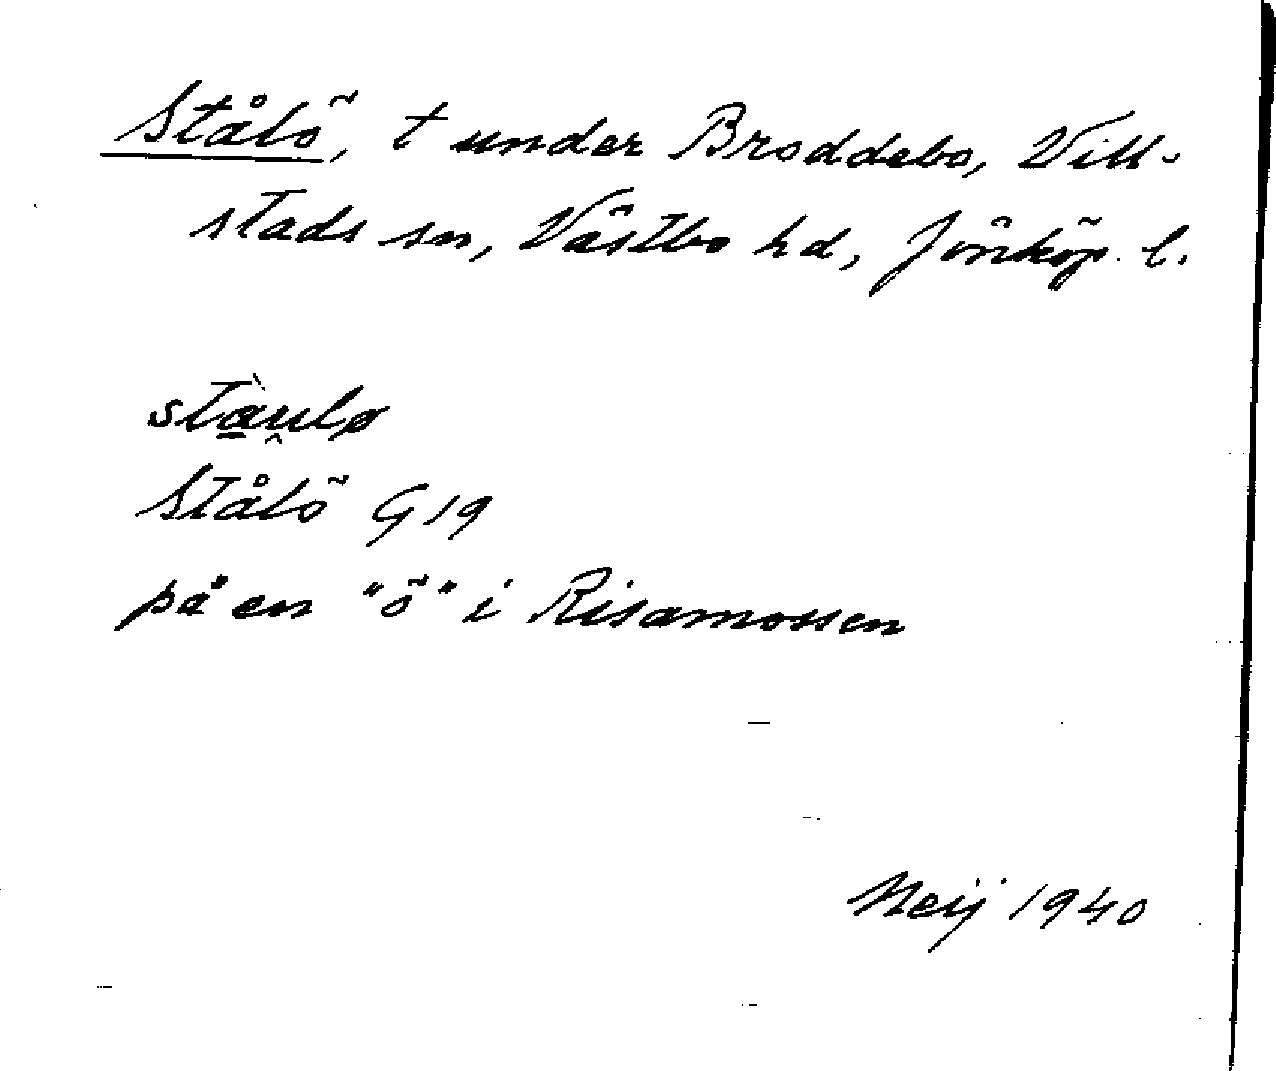 Stålö, t under Broddebo, Vill-
stads sn, Västbo hd, Jönköp. l.
stàu̯lø
Stålö G 19
på en "ö" i Risamossen
Meij 1940